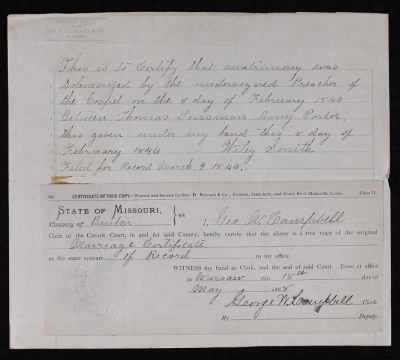 This is to Certify that matrimony was
Solemnized by the undersigned Preacher of
the Gospel on the 8 day of February 1846
Between Thomas Nancy Porter,
this given under my hand this 8 day of
February 1846 Wiley Smith
Filed for Record March 9 1846.
CERTIFICATE OF TRUE COPY
STATE OF MISSOURI,
County of Benton } ss I, Geo W. Campbell
Clerk of the Circuit Court, in and for said County, hereby certify that the above is a true copy of the original
Marriage Certificate
as the same appears of Record in my office.
WITNESS my hand as Clerk, and the seal of said Court. Done at office
in Warsaw this 18th day of
May
George W Campbell Clerk
By Deputy.